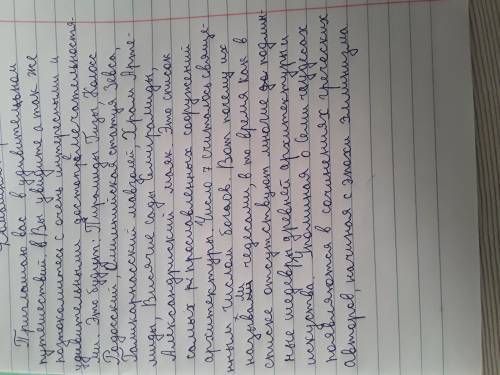 Приглашаю вас в удивительном
путешествий. Вы увидите а так же
познакомитесь с очень интересными и
удивительными достопримечательностя-
ми. Это будут: Пирамиды Гизы, Колосс
Родосский, Олимпийская статуя Зевса,
Галикарнасский мавзолей, Храм Арте-
миды, Висячие сады Семирамиды,
Александрийский маяк. Это список
самых прославленных сооружений
архитектуры. Число 7 считалось свяще-
нным числом богов. Вот почему их
называли чудесами, в то время как в
списке отсутствуют многие подлин-
ные шедевры древней архитектуры и
искусства. Упоминая о семи чудесах
появляются в сочинениях греческих
авторов, начиная с эпохи эллинизма